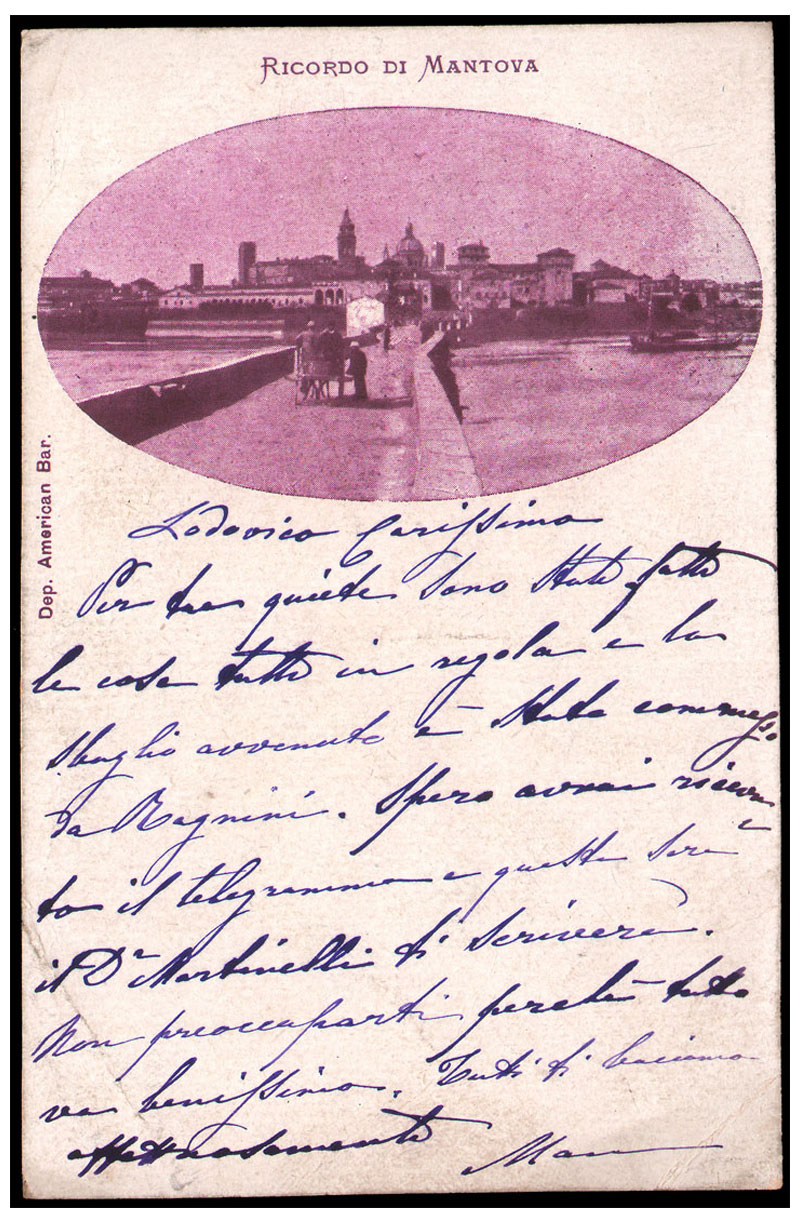 RICORDO DI MANTOVA
Dep. American Bar.
Lodovico Carissimo
Per tua quiete sono state fatte
le cose tutte in regola e lo
sbaglio avvenuto è stato commesso
da Ragnini. Spero avrai ricevu-
to il telegramma e questa sera
il Dr Martinelli ti scriverà.
Non preoccuparti perchè tutto
va benissimo. Tutti ti baciamo
affettuosamente